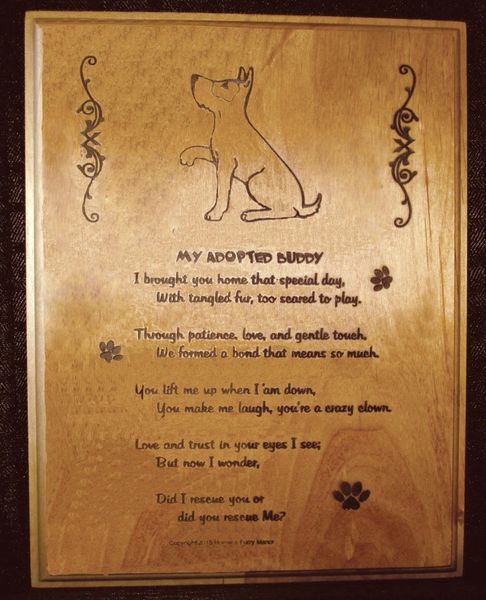 MY ADOPTED BUDDY
I brought you home that special day,
With tangled fur, too scared to play.
Through patience, love, and gentle touch.
We formed a bond that means so much.
You lift me up when I'am down,
You make me laugh, you're a crazy clown.
Love and trust in your eyes I see;
But now I wonder,
Did I rescue you or
did you rescue Me?
Copyright 2015 Furry Manor